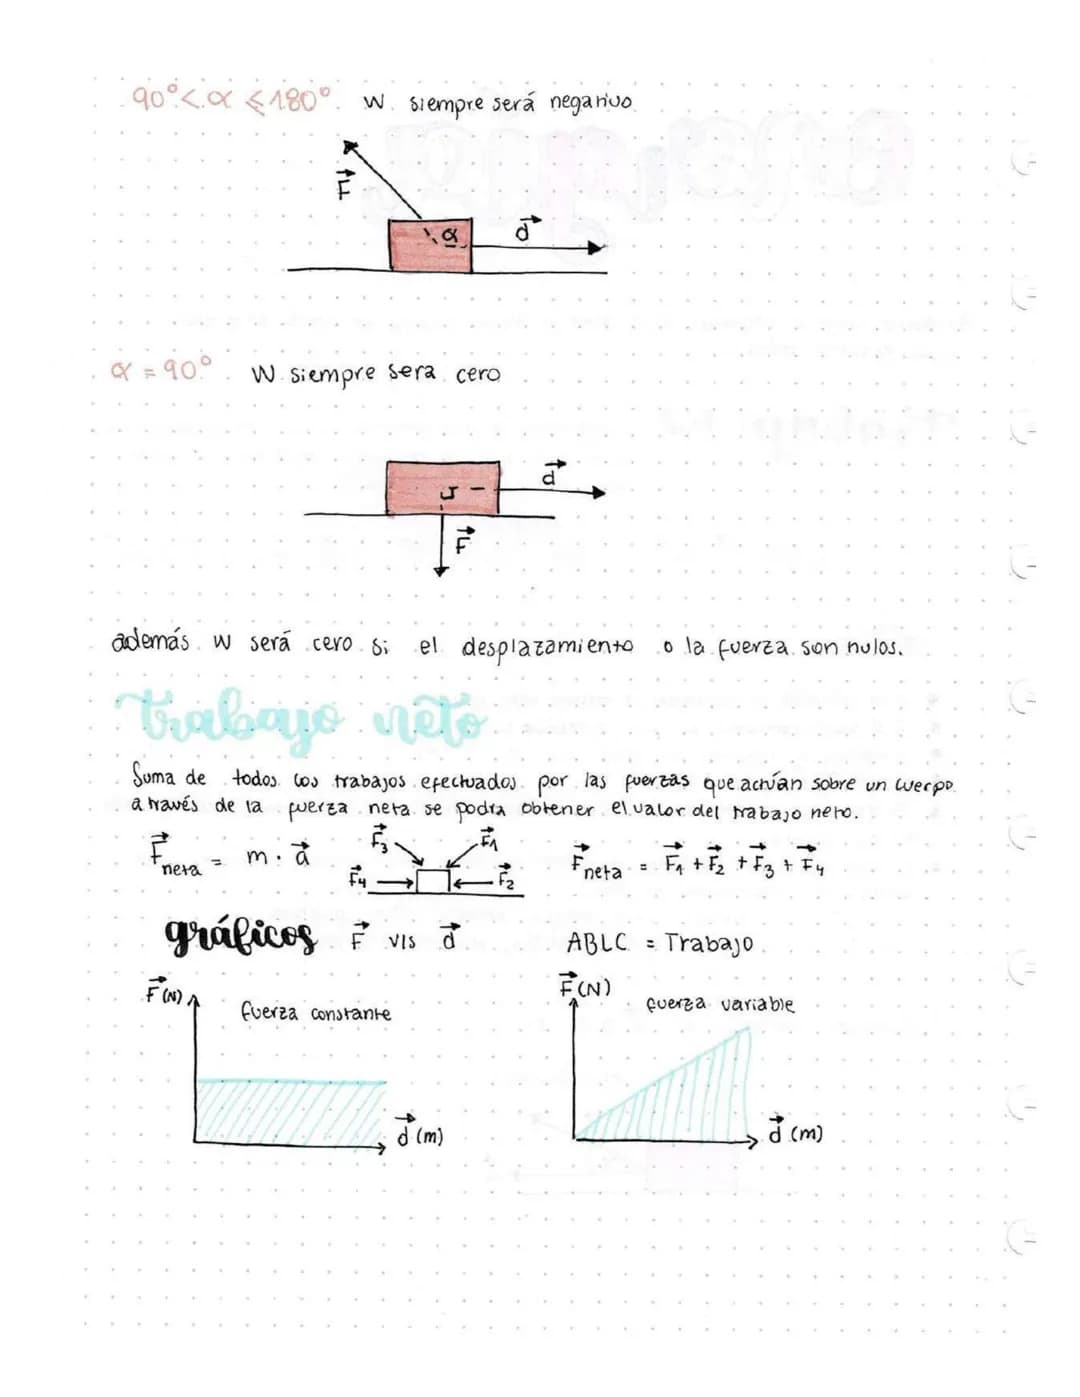 90° < α ≤ 180° W siempre será negativo
F
α
d
α = 90° W siempre sera cero
d
F
además W será cero si el desplazamiento o la fuerza son nulos.
trabajo neto
Suma de todos los trabajos efectuados por las fuerzas que actúan sobre un cuerpo
a través de la fuerza neta se podra obtener el valor del trabajo neto.
F⃗neta = m · a⃗
F⃗3 F⃗1
F⃗4 F⃗2
F⃗neta = F⃗1 + F⃗2 + F⃗3 + F⃗4
gráficos F⃗ v/s d⃗ ABLC = Trabajo
F⃗(N) fuerza constante
d⃗ (m)
F⃗(N) fuerza variable
d⃗ (m)